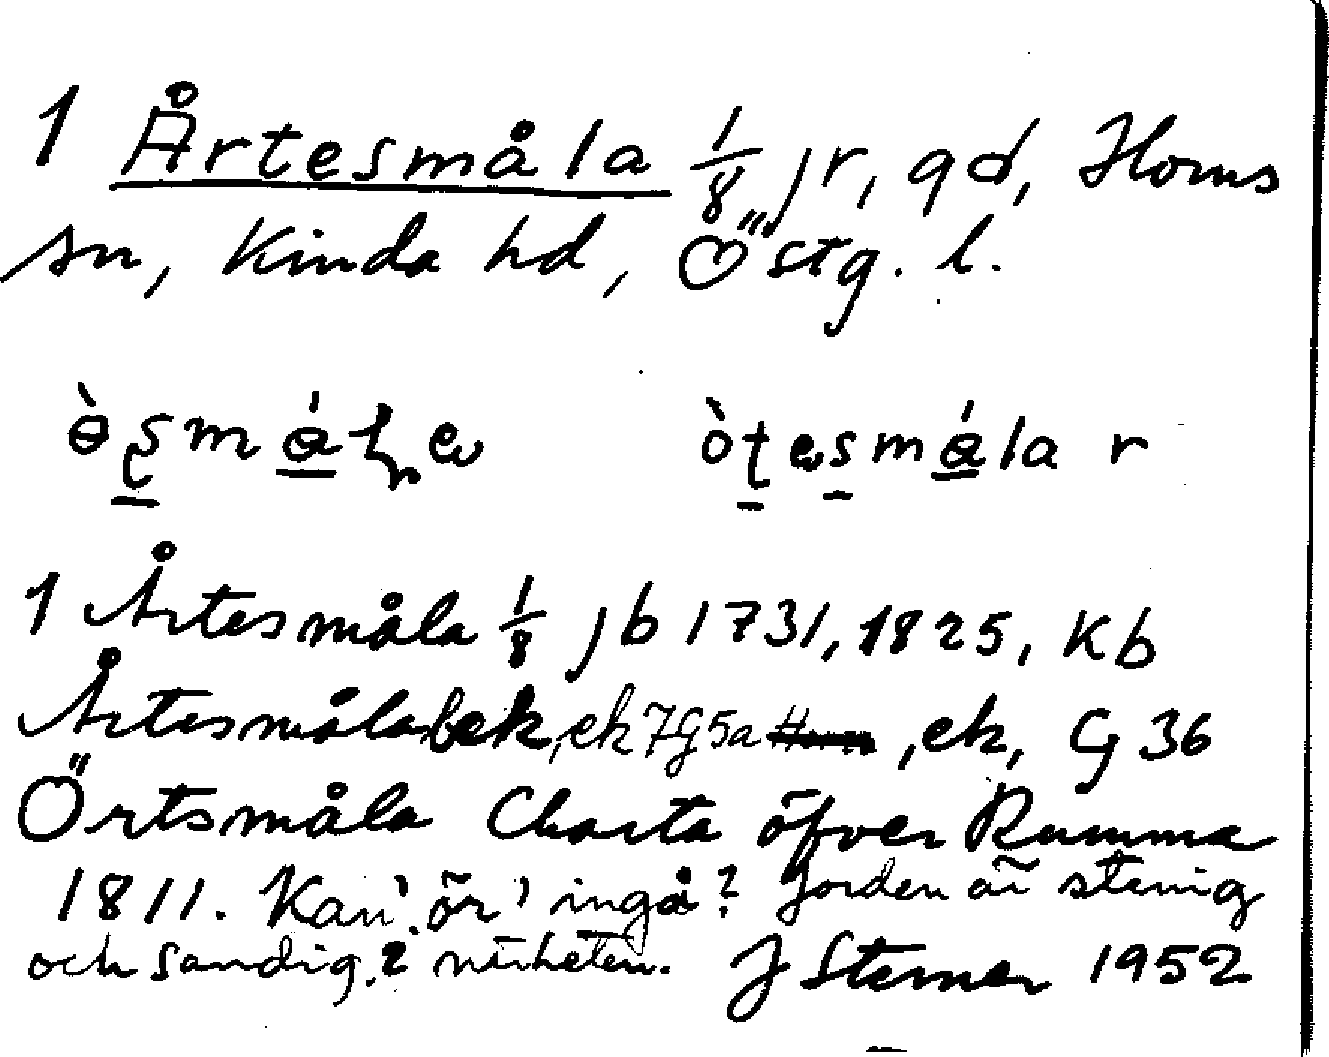 1 Årtesmåla 1/8 jr, gd, Horns
sn, Kinda hd, Östg. l.
1 Årtesmåla 1/8 jb 1731, 1825, Kb
Årtesmåla bek, ek 7G5a, ek, G 36
Örtsmåla Charta öfver Rumma
1811. Kan 'ör' ingå? Jorden är stenig
och sandig i närheten. J Sterner 1952